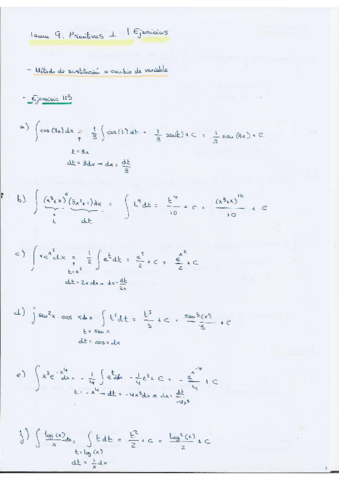 Tema 9. Primitivas 1 | Ejercicios
- Método de sustitución o cambio de variable
- Ejercicio 115
a) ∫cos(3x)dx = 1/3 ∫cos(t)dt = 1/3 sen(t)+C = 1/3 sen(3x)+C
t=3x
dt=3dx → dx=dt/3
b) ∫(x³+x)⁹(3x²+1)dx = ∫t⁹dt = t¹⁰/10 + C = (x³+x)¹⁰/10 + C
t dt
c) ∫xe^x² dx = 1/2 ∫e^t dt = e^t/2 + C = e^x²/2 + C
t=x²
dt=2xdx → dx=dt/2x
d) ∫sen²x · cosx dx = ∫t²dt = t³/3 + C = sen³(x)/3 + C
t=senx
dt=cosxdx
e) ∫x³e^-x⁴ dx = -1/4 ∫e^t dt = -1/4 e^t + C = -e^-x⁴/4 + C
t=-x⁴ → dt=-4x³dx → dx=dt/-4x³
f) ∫log(x)/x dx = ∫tdt = t²/2 + C = log²(x)/2 + C
t=log(x)
dt=1/x dx